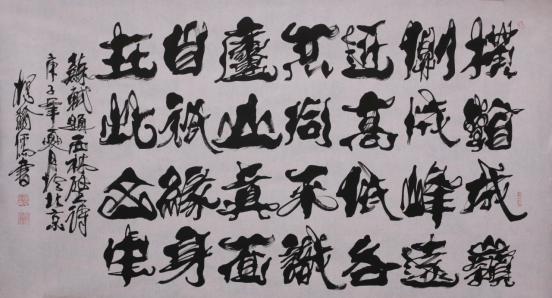 橫看成嶺
側成峰遠
近高低各
不同不識
廬山真面
目祇緣身
在此山中
蘇軾題西林壁
庚子年月於北京
書